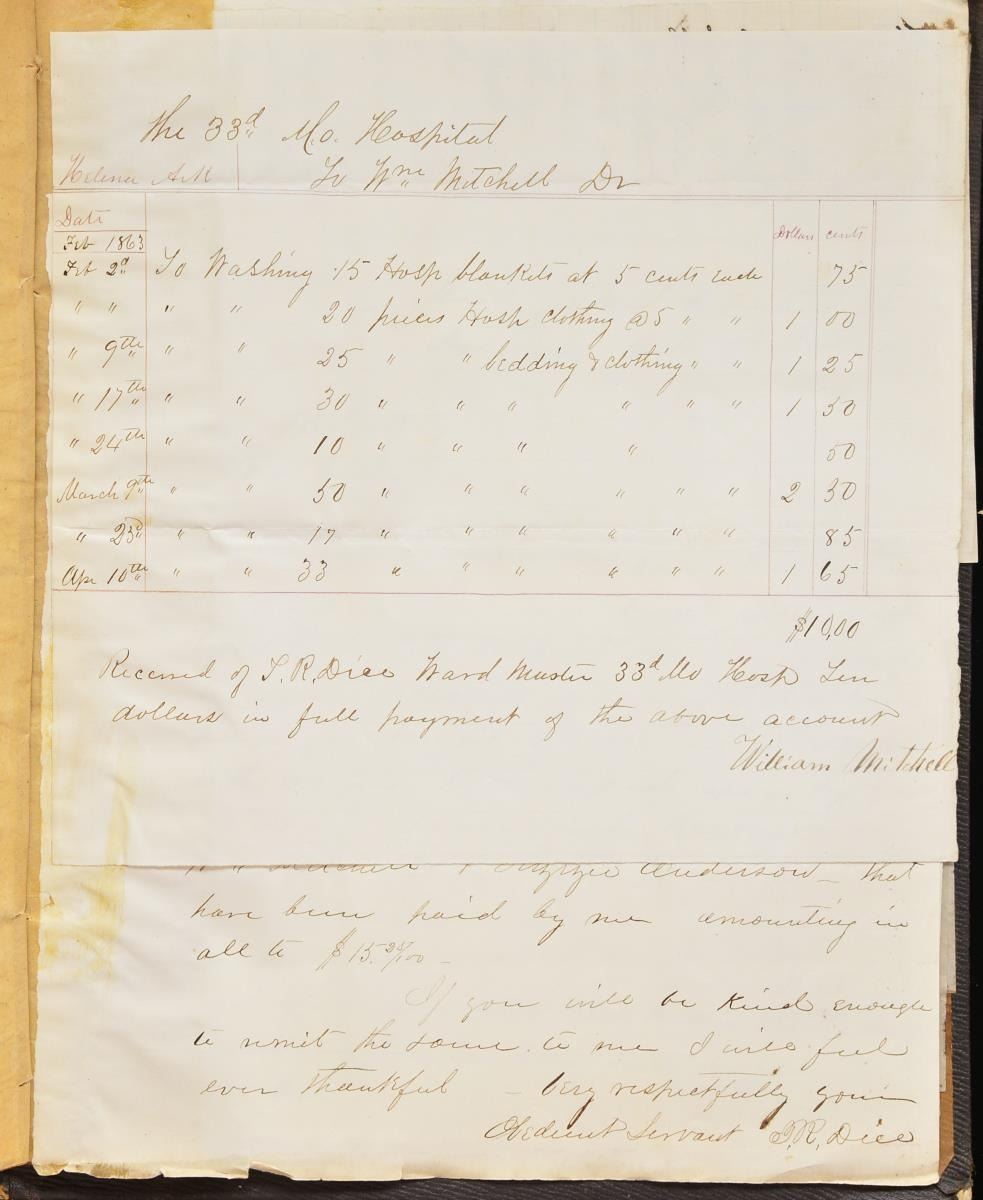 The 33d Mo. Hospital
Helena Ark To Wm Mitchell Dr
Date
Dollars cents
Feb 1863
Feb 2d To Washing 15 Hosp blankets at 5 cents each 75
" " " " 20 pieces Hosp clothing @ 5 " " 1 00
" 9th " " 25 " " bedding & clothing " " 1 25
" 17th " " 30 " " " " " " 1 50
" 24th " " 10 " " " " 50
March 9th " " 50 " " " " " " 2 50
" 23d " " 17 " " " " " " 85
Apr 10th " " 33 " " " " " " 1 65
$10,00
Received of T. R. Dice Ward Master 33d Mo Hosp Ten
dollars in full payment of the above account
William Mitchell
Anderson – that
have been paid by me amounting in
all to $15.24/100 –
If you will be kind enough
to remit the same to me I will feel
ever thankful – Very respectfully your
Obedient Servant T. R. Dice